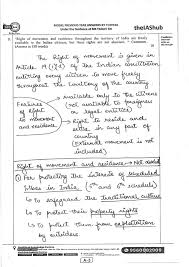 MODEL PREVIOUS YEAR ANSWERS BY TOPPERS
theIAShub
"Right of movement and residence throughout the territory of India are freely
available to the Indian citizens, but these rights are not absolute." Comment
(Answer in 150 words)
The Right of movement is given in
Article 19 of the Indian constitution
entitling every citizen to move freely
throughout the territory of the country
Features
of Right
to movement
and residence
Available only to the citizens
(not available to foreigners
or legal entities)
Right to reside and
settle in any part of
country
(External movement is not
included)
Right of movement and residence → Not absolute
(1) For protecting the interests of scheduled
tribes in India (5th and 6th schedule)
↳ to safeguard the traditional culture
↳ to protect their property rights
↳ to protect them from exploitation by
outsiders